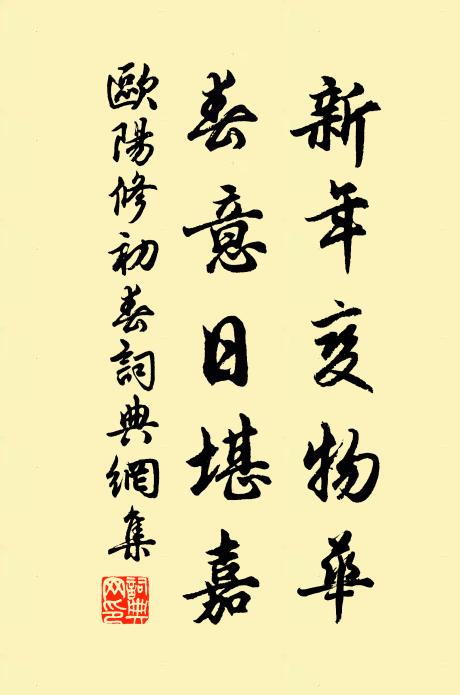 新年变物華
春意日堪嘉
歐陽修初春詞典網集
詞典网印